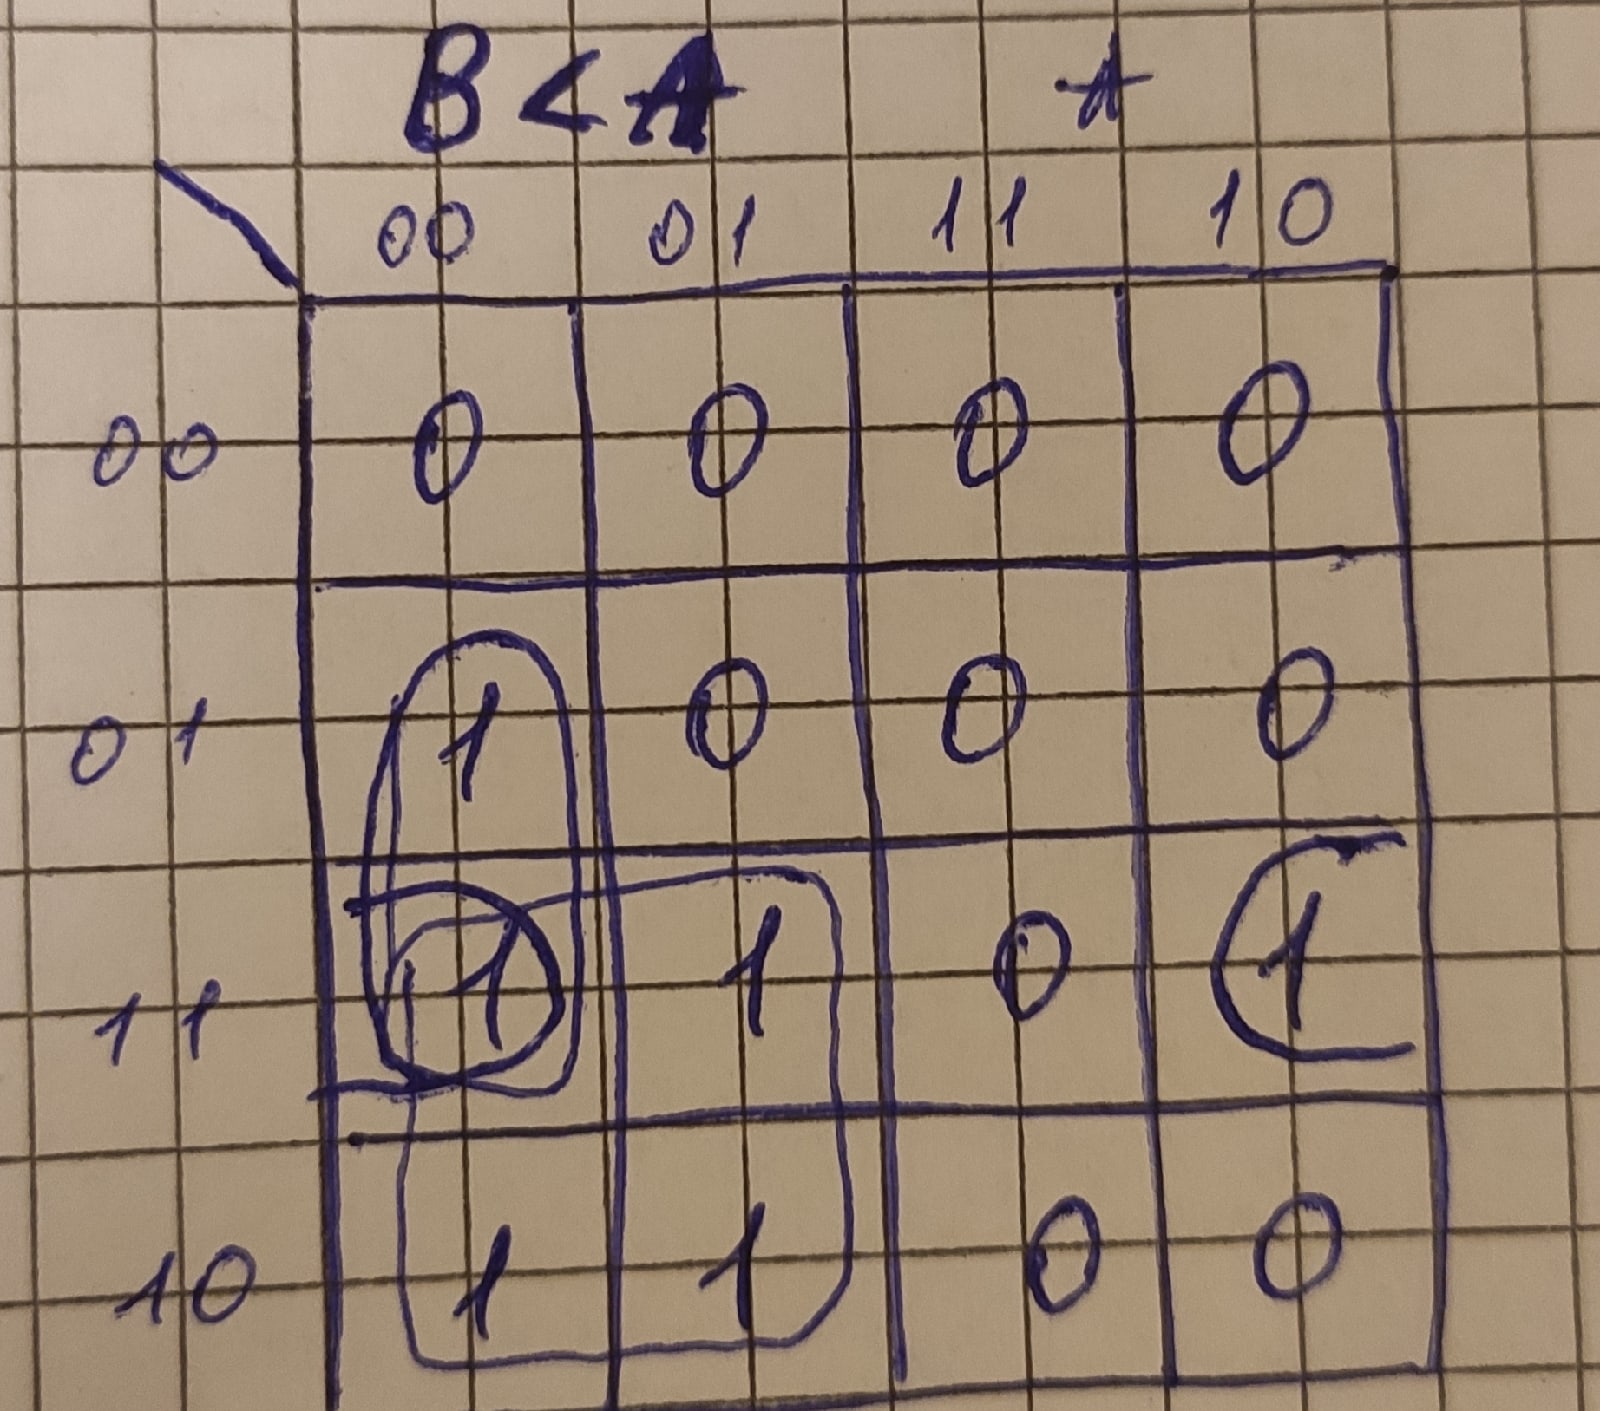 B < A A
00 01 11 10
00 0 0 0 0
01 1 0 0 0
11 1 1 0 1
10 1 1 0 0